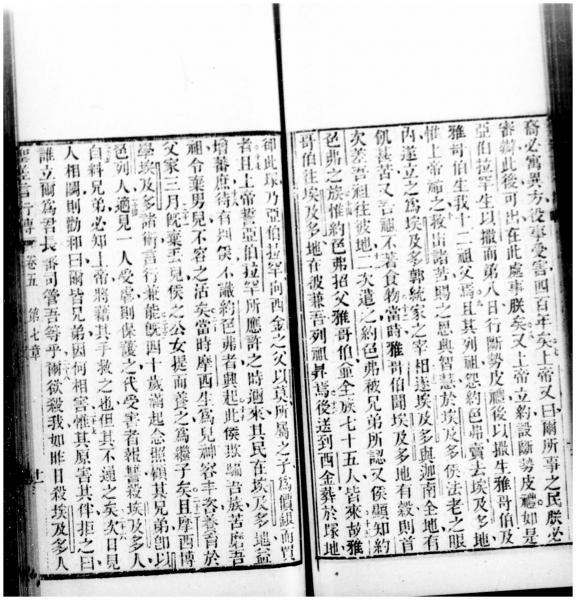 裔必寓異方役事受害四百年矣上帝又曰爾所事之民朕必
審劓此後可出在此處事朕矣又上帝立約設斷勢皮禮如是
亞伯拉罕生以撒而第八日行斷勢皮禮後以撒生雅哥伯及
雅哥伯生我十二祖父焉且其列祖怨約色弗賣去埃及多地
惟上帝祐之救出諸苦賜之恩與智慧於埃及多侯法老之眼
內遂立之為埃及多郭統家之宰相遂埃及多與迦南全地有
飢甚苦又吾祖不著食物當時雅哥伯聞埃及多地有穀則首
次差吾祖往彼地二次遣之約色弗被兄弟所認又侯顯知約
色弗之族惟約色弗招父雅哥伯並全族七十五人皆來故雅
哥伯往埃及多地在彼兼吾列祖焉後送到西金葬於塚地
卻此塚乃亞伯拉罕向西金之父以莫所屬之子為價銀而買
者且上帝誓亞伯拉罕所應許之時邇來其民在埃及多地益
增蕃庶待有別侯不識約色弗者興起此侯欺騙吾族苦磨吾
祖令棄男兒不容之活矣當時摩西生為兒神容丰姿養育於
父家三月旣棄兒侯之公女提而養之為繼子矣且摩西博
學埃及多諸術言行兼能旣四十歲滿起念照顧其兄弟卽以
色列人適見一人受虐則保護之代受害者報讐殺埃及多人
自料兄弟必知上帝將藉其手救之也但其不通之矣次日見
人相鬪則勸和曰爾皆兄弟因何相害惟其原害其伴拒之曰
誰立爾為吾長審司管吾等乎爾欲殺我如昨日殺埃及多人
言行傳 卷五 第七章 十